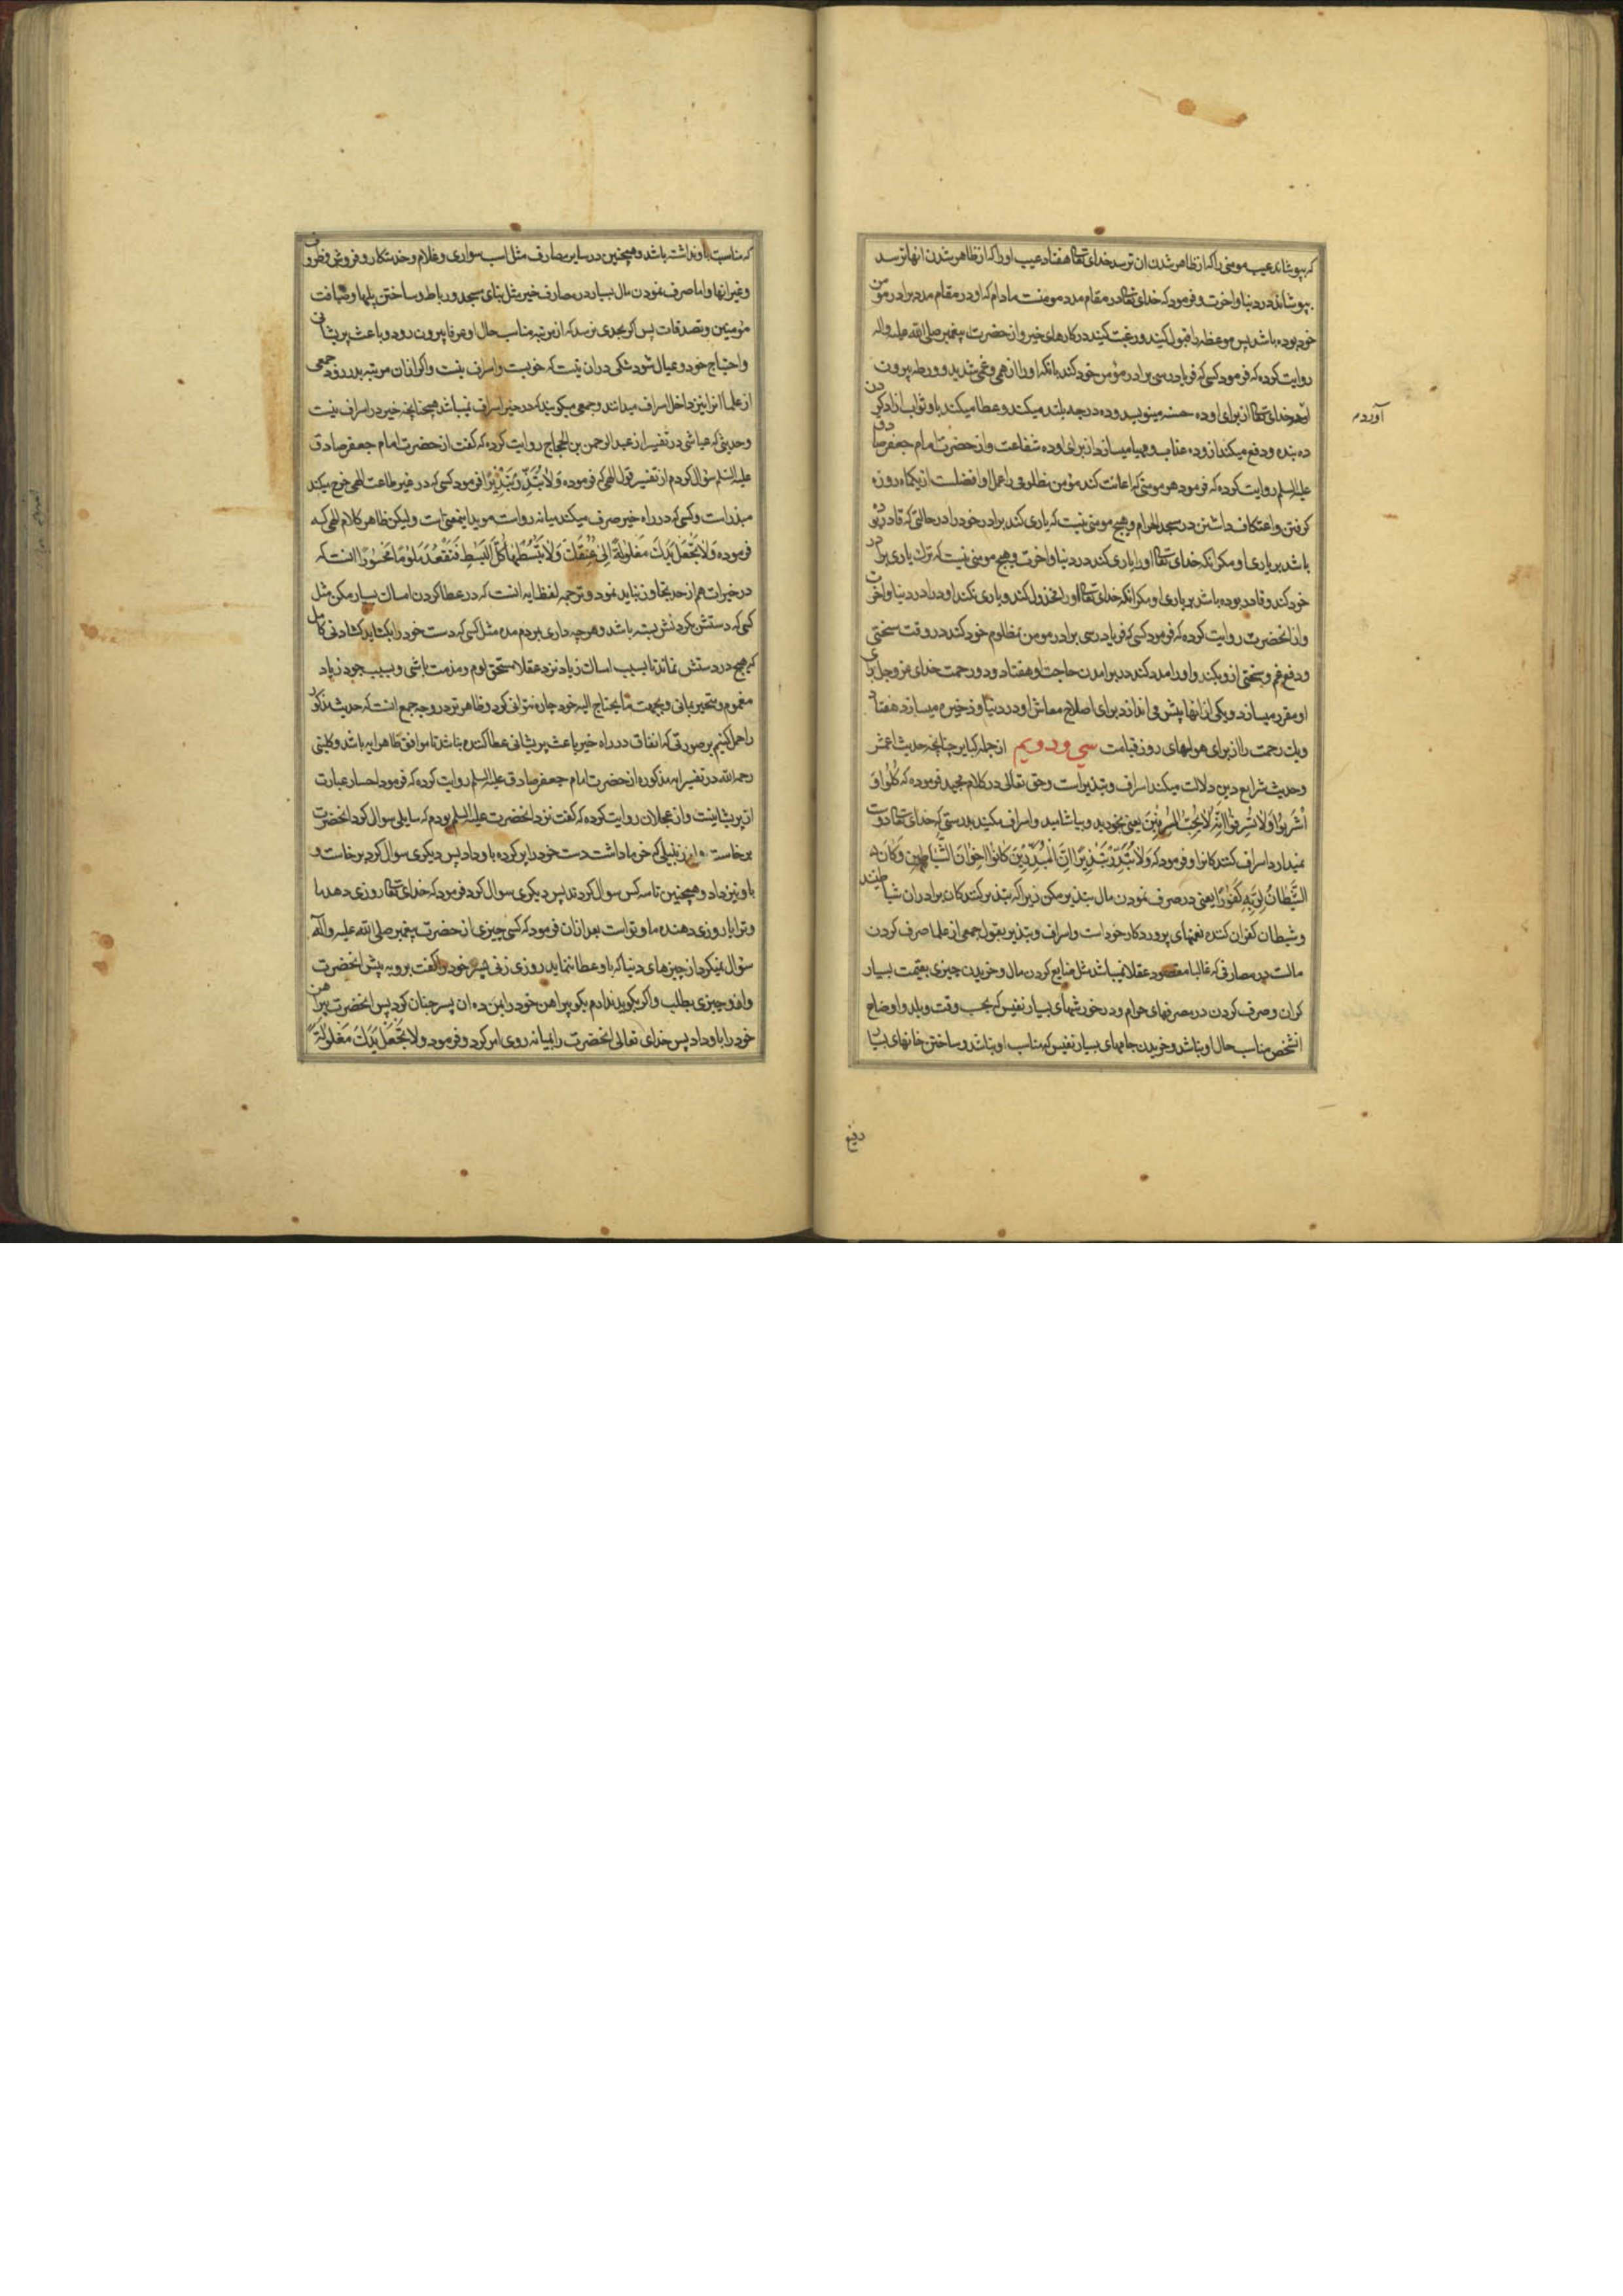 که بپوشاند عیب مومنی را که از ظاهر شدن ان ترسد خدای تعالی هفتاد عیب او را که از ظاهر شدن انها ترسد
بپوشاند در دنیا و اخرت و فرمود که خدای تعالی در مقام مدد مومنست مادام که او در مقام مدد برادر مومن
خود بوده باشد پس موعظه را قبول کنید و رغبت کنید در کارهای خیر و از حضرت پیغمبر صلی الله علیه واله
روایت کرده که فرمود کسی که فریادرسی برادر مؤمن خود کند بانکه او را از همی و غمی شدید و ورطه بیرون
اورد خدای تعالی از برای او ده حسنه مینویسد و ده درجه بلند میکند و عطا میکند باو ثواب ازاد کردن
آوردم
ده بنده و دفع میکند ازو ده عذاب و مهیا میسازد از برای او ده شفاعت و از حضرت امام جعفر صادق
علیه السلم روایت کرده که فرمود هر مومنی که اعانت کند مؤمن مظلومی را عمل او افضلست از یکماه روزه
کرفتن و اعتکاف داشتن در مسجد الحرام و هیچ مومنی نیست که یاری کند برادر خود را در حالتی که قادر بوده
باشد بر یاری او مکر انکه خدای تعالی او را یاری کند در دنیا و اخرت و هیچ مومنی نیست که ترک یاری برادر
خود کند و قادر بوده باشد بر یاری او مکر انکه خدای تعالی او را مخذول کند و یاری نکند او را در دنیا و اخرت
و از انحضرت روایت کرده که فرمود کسی که فریادرسی برادر مومن مظلوم خود کند در وقت سختی
و دفع غم و سختی ازو بکند و او را مدد کند در برامدن حاجت او هفتاد و دو رحمت خدای عز و جل برای
او مقرر میسازد و یکی از انها پیش می اندازد برای اصلاح معاش او در دنیا و ذخیره میسازد هفتاد
و یک رحمت را از برای هولهای روز قیامت سی و دویم از جمله کبایر چنانچه حدیث اعمش
و حدیث شرایع دین دلالت میکند اسراف و تبذیر است و حق تعالی در کلام مجید فرموده که کُلُوا وَ
اشْرَبُوا وَلَا تُسْرِفُوا اِنَّهُ لَا یُحِبُّ الْمُسْرِفِینَ یعنی بخورید و بیاشامید و اسراف مکنید بدرستی که خدای تعالی دوست
نمیدارد اسراف کنندکانرا و فرمود که وَلَا تُبَذِّرْ تَبْذِیرًا اِنَّ الْمُبَذِّرِینَ کَانُوا اِخْوَانَ الشَّیَاطِینِ وَکَانَ
الشَّیْطَانُ لِرَبِّهِ کَفُورًا یعنی در صرف نمودن مال تبذیر مکن زیرا که تبذیر کنندکان برادران شیاطینند
و شیطان کفران کننده نعمتهای پروردکار خود است و اسراف و تبذیر بقول جمعی از علما صرف کردن
مالست در مصارفی که غالبا مقصود عقلا نمیباشد مثل ضایع کردن مال و خریدن چیزی بقیمت بسیار
کران و صرف کردن در مصرفهای حرام و در خورشهای بسیار نفیس که بحسب وقت و بلد و اوضاع
انشخص مناسب حال او نباشد و خریدن جامهای بسیار نفیس که مناسب او نباشد و ساختن خانهای بسیار
رفیع
که مناسبت باو نداشته باشد و همچنین در سایر مصارف مثل اسب سواری و غلام و خدمتکار و فروش و ظروف
و غیر انها و اما صرف نمودن مال بسیار در مصارف خیر مثل بنای مسجد و رباط و ساختن پلها و ضیافت
مؤمنین و تصدقات پس اکر بحدی نرسد که از مرتبه مناسب حال او عرفا بیرون رود و باعث پریشانی
و احتیاج خود و عیال شود شکی دران نیست که خوبست و اسراف نیست و اکر ازان مرتبه بدر رود جمعی
از علما انرا نیز داخل اسراف میدانند و جمعی میکویند که در خیر اسراف نمیباشد همچنانچه خیر در اسراف نیست
و حدیثی که عیاشی در تفسیر از عبد الرحمن بن الحجاج روایت کرده که کفت از حضرت امام جعفر صادق
علیه السلم سؤال کردم از تفسیر قول الهی که فرموده وَلَا تُبَذِّرْ تَبْذِیرًا فرمود کسی که در غیر طاعت الهی خرج میکند
مبذر است و کسی که در راه خیر صرف میکند میانه رو است موید اینمعنی است و لیکن ظاهر کلام الهی که
فرموده وَلَا تَجْعَلْ یَدَكَ مَغْلُولَةً اِلٰی عُنُقِكَ وَلَا تَبْسُطْهَا کُلَّ الْبَسْطِ فَتَقْعُدَ مَلُومًا مَحْسُورًا انست که
در خیرات هم از حد تجاوز نباید نمود و ترجمه لفظ ایه انست که در عطا کردن امساک بسیار مکن مثل
کسی که دستش بکردنش بسته باشد و هر چه داری بمردم مده مثل کسی که دست خود را بکشاید کشادنی کامل
که هیچ در دستش نماند تا بسبب امساک زیاد نزد عقلا مستحق لوم و مذمت باشی و بسبب جود زیاد
مغموم و متحیر بمانی و بجهت ما یحتاج الیه خود چاره نتوانی کرد و ظاهرتر در وجه جمع انست که حدیث مذکور
را حمل کنیم بر صورتی که انفاق در راه خیر باعث پریشانی عطا کننده نباشد تا موافق ظاهر ایه باشد و کلینی
رحمه الله در تفسیر ایه مذکوره از حضرت امام جعفر صادق علیه السلم روایت کرده که فرمود احسار عبارت
از پریشانیست و از عجلان روایت کرده که کفت نزد انحضرت علیه السلم بودم که سایلی سوال کرد انحضرت
برخاست و از زنبیلی که خرما داشت دست خود را پر کرده باو داد پس دیکری سوال کرد برخاست و
باو نیز داد و همچنین تا سه کس سوال کردند پس دیکری سوال کرد فرمود که خدای تعالی روزی دهد ما
و ترا یا روزی دهنده ما و تو است بعد ازان فرمود که کسی چیزی از حضرت پیغمبر صلی الله علیه و آله
سؤال نمیکرد از چیزهای دنیا که باو عطا ننماید روزی زنی پسر خود را کفت برو به پیش انحضرت
و ازو چیزی بطلب و اکر بکوید ندارم بکو پیراهن خود را بمن ده ان پسر چنان کرد پس انحضرت پیراهن
خود را باو داد پس خدای تعالی انحضرت را بمیانه روی امر کرد و فرمود ولا تَجْعَلْ یَدَكَ مَغْلُولَةً